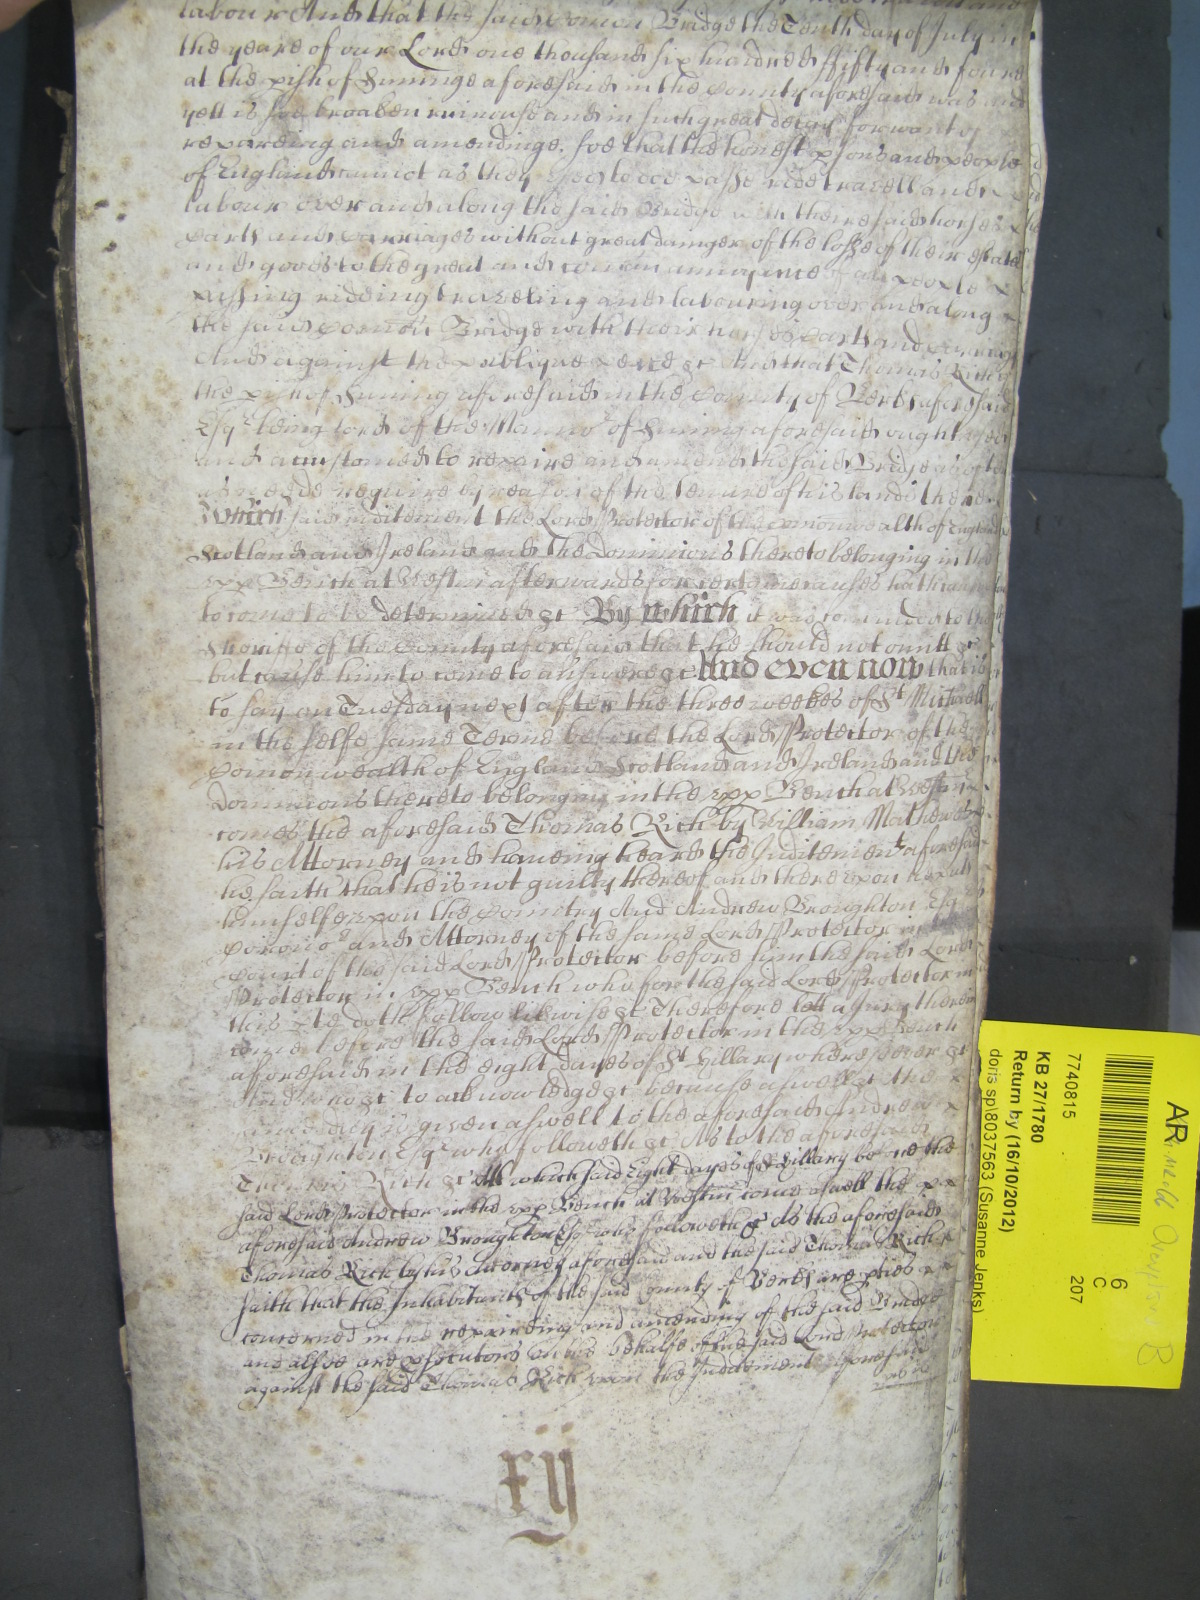 labour And that the said Comon Bridge the Tenth day of July in
the yeare of our Lord one thousand six hundred ffifty and foure
at the pish of Sunninge aforesaid in the County aforesaid was and
yett is soe broaken ruinouse and in such great decay for want of
repareing and amendinge. soe that the honest psons and people
of England cannot as they used to doe passe ride travell and
labour over and along the said Bridge with theire said horses
Carts and Carriages without great danger of the losse of their estate
and goods to the great and comon annoyance of all people
passing rideing traveling and labouring over and along
the said Comon Bridge with their horses Carts and Carriages
And against the publique peace &c And that Thomas Rich of
the pish of Sunning aforesaid in the County of Berks aforesaid
Esqr being lord of the Mannor of Sunning aforesaid ought used
and accustomed to repaire and amend the said Bridge as often
as neede require by reason of the tenure of his lands there
Which said inditement the Lord Protector of the Comonwealth of England
Scotland and Ireland and the Dominions thereto belonging in the
upp Bench at Westmr afterwards for certeine causes hath caused
to come to be determined &c By which it was comanded to the
Sheriffe of the County aforesaid that he should not omitt &c
but cause him to come to answere &c And even now that is
to say on Tuesday next after the three weekes of St Michaell
in this selfe same Terme before the Lord Protector of the
Comonwealth of England Scotland and Ireland and the
Dominions thereto belonging in the upp Bench at Westmr
comes the aforesaid Thomas Rich by William Mathewes
his Attorney and haueing heard the Inditement aforesaid
he saith that he is not guilty thereof and thereupon he putts
himselfe upon the Country And Andrew Broughton Esqr
Coronor and Attorney of the same Lord Protector in the
Court of the said Lord Protector before him the said Lord
Protector in upp Bench who for the said Lord Protector in
this pte doth follow likewise &c Therefore lett a Jury therein
come before the said Lord Protector in the upp Bench
aforesaid in the eight dayes of St Hillary wheresoever &c
And who &c to acknowledge &c because aswell &c the
same day is given aswell to the aforesaid Andrew
Broughton Esqr who followeth &c As to the aforesaid
Thomas Rich &c Att which said Eight dayes of St Hillary before the
said Lord Protector in the upp Bench at Westmr come aswell the
aforesaid Andrew Broughton Esqr who followeth &c As the aforesaid
Thomas Rich by his Attorney aforesaid and the said Thomas Rich
saith that the Inhabitants of the said County of Berks are pties
concerned in the repaireing and amending of the said Bridge
and alsoe are psecutors on the behalfe of the said Lord Protector
against the said Thomas Rich upon the Inditement aforesaid
xij
AR
6
C
207
7740815
KB 27/1780
Return by (16/10/2012)
doris sp\8037563 (Susanne Jenks)
B